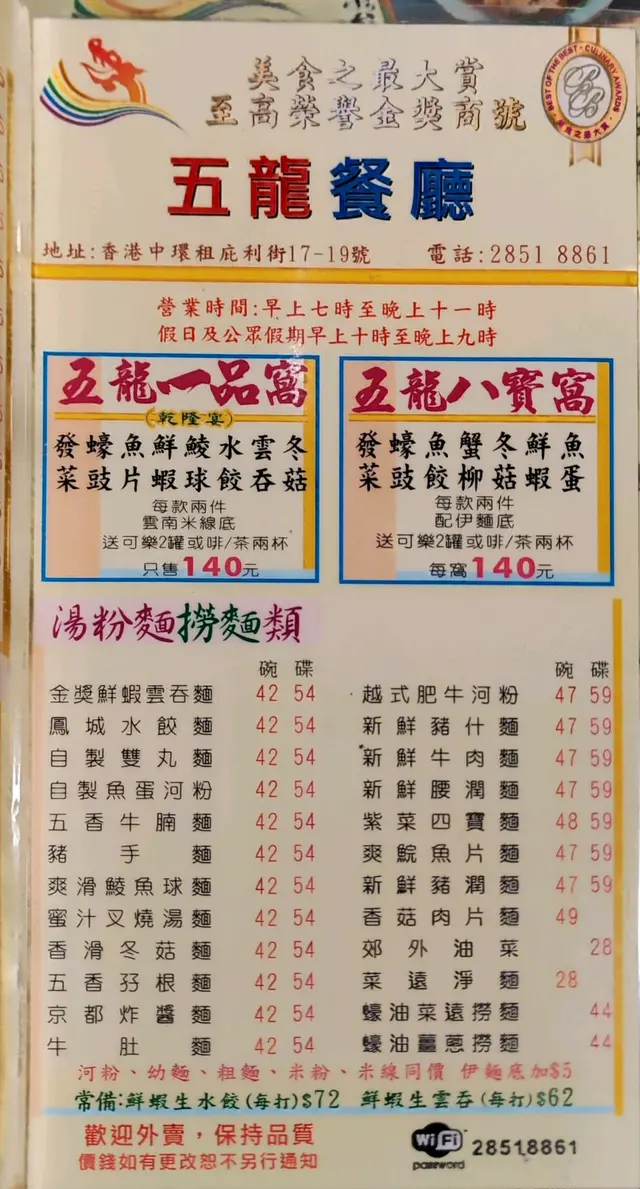 美食之最大賞
至高榮譽金獎商號
BEST OF THE BEST · CULINARY AWARDS
美食之最大賞
五龍餐廳
地址:香港中環租庇利街17-19號 電話:2851 8861
營業時間:早上七時至晚上十一時
假日及公眾假期早上十時至晚上九時
五龍一品窩
(乾隆宴)
發蠔魚鮮鯪水雲冬
菜豉片蝦球餃吞菇
每款兩件
雲南米線底
送可樂2罐或啡/茶兩杯
只售140元
五龍八寶窩
發蠔魚蟹冬鮮魚
菜豉餃柳菇蝦蛋
每款兩件
配伊麵底
送可樂2罐或啡/茶兩杯
每窩140元
湯粉麵撈麵類
碗 碟
金獎鮮蝦雲吞麵 42 54
鳳城水餃麵 42 54
自製雙丸麵 42 54
自製魚蛋河粉 42 54
五香牛腩麵 42 54
豬手麵 42 54
爽滑鯪魚球麵 42 54
蜜汁叉燒湯麵 42 54
香滑冬菇麵 42 54
五香孖根麵 42 54
京都炸醬麵 42 54
牛肚麵 42 54
碗 碟
越式肥牛河粉 47 59
新鮮豬什麵 47 59
新鮮牛肉麵 47 59
新鮮腰潤麵 47 59
紫菜四寶麵 48 59
爽鯇魚片麵 47 59
新鮮豬潤麵 47 59
香菇肉片麵 49
郊外油菜 28
菜遠淨麵 28
蠔油菜遠撈麵 44
蠔油薑蔥撈麵 44
河粉、幼麵、粗麵、米粉、米線同價 伊麵底加$5
常備:鮮蝦生水餃(每打)$72 鮮蝦生雲吞(每打)$62
歡迎外賣，保持品質
價錢如有更改恕不另行通知
WiFi 28518861
password